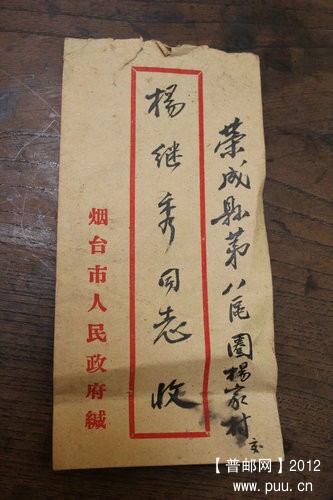 荣成县第八区圈杨家村交
杨继秀同志收
烟台市人民政府缄
【普邮网】2012
www.puu.cn